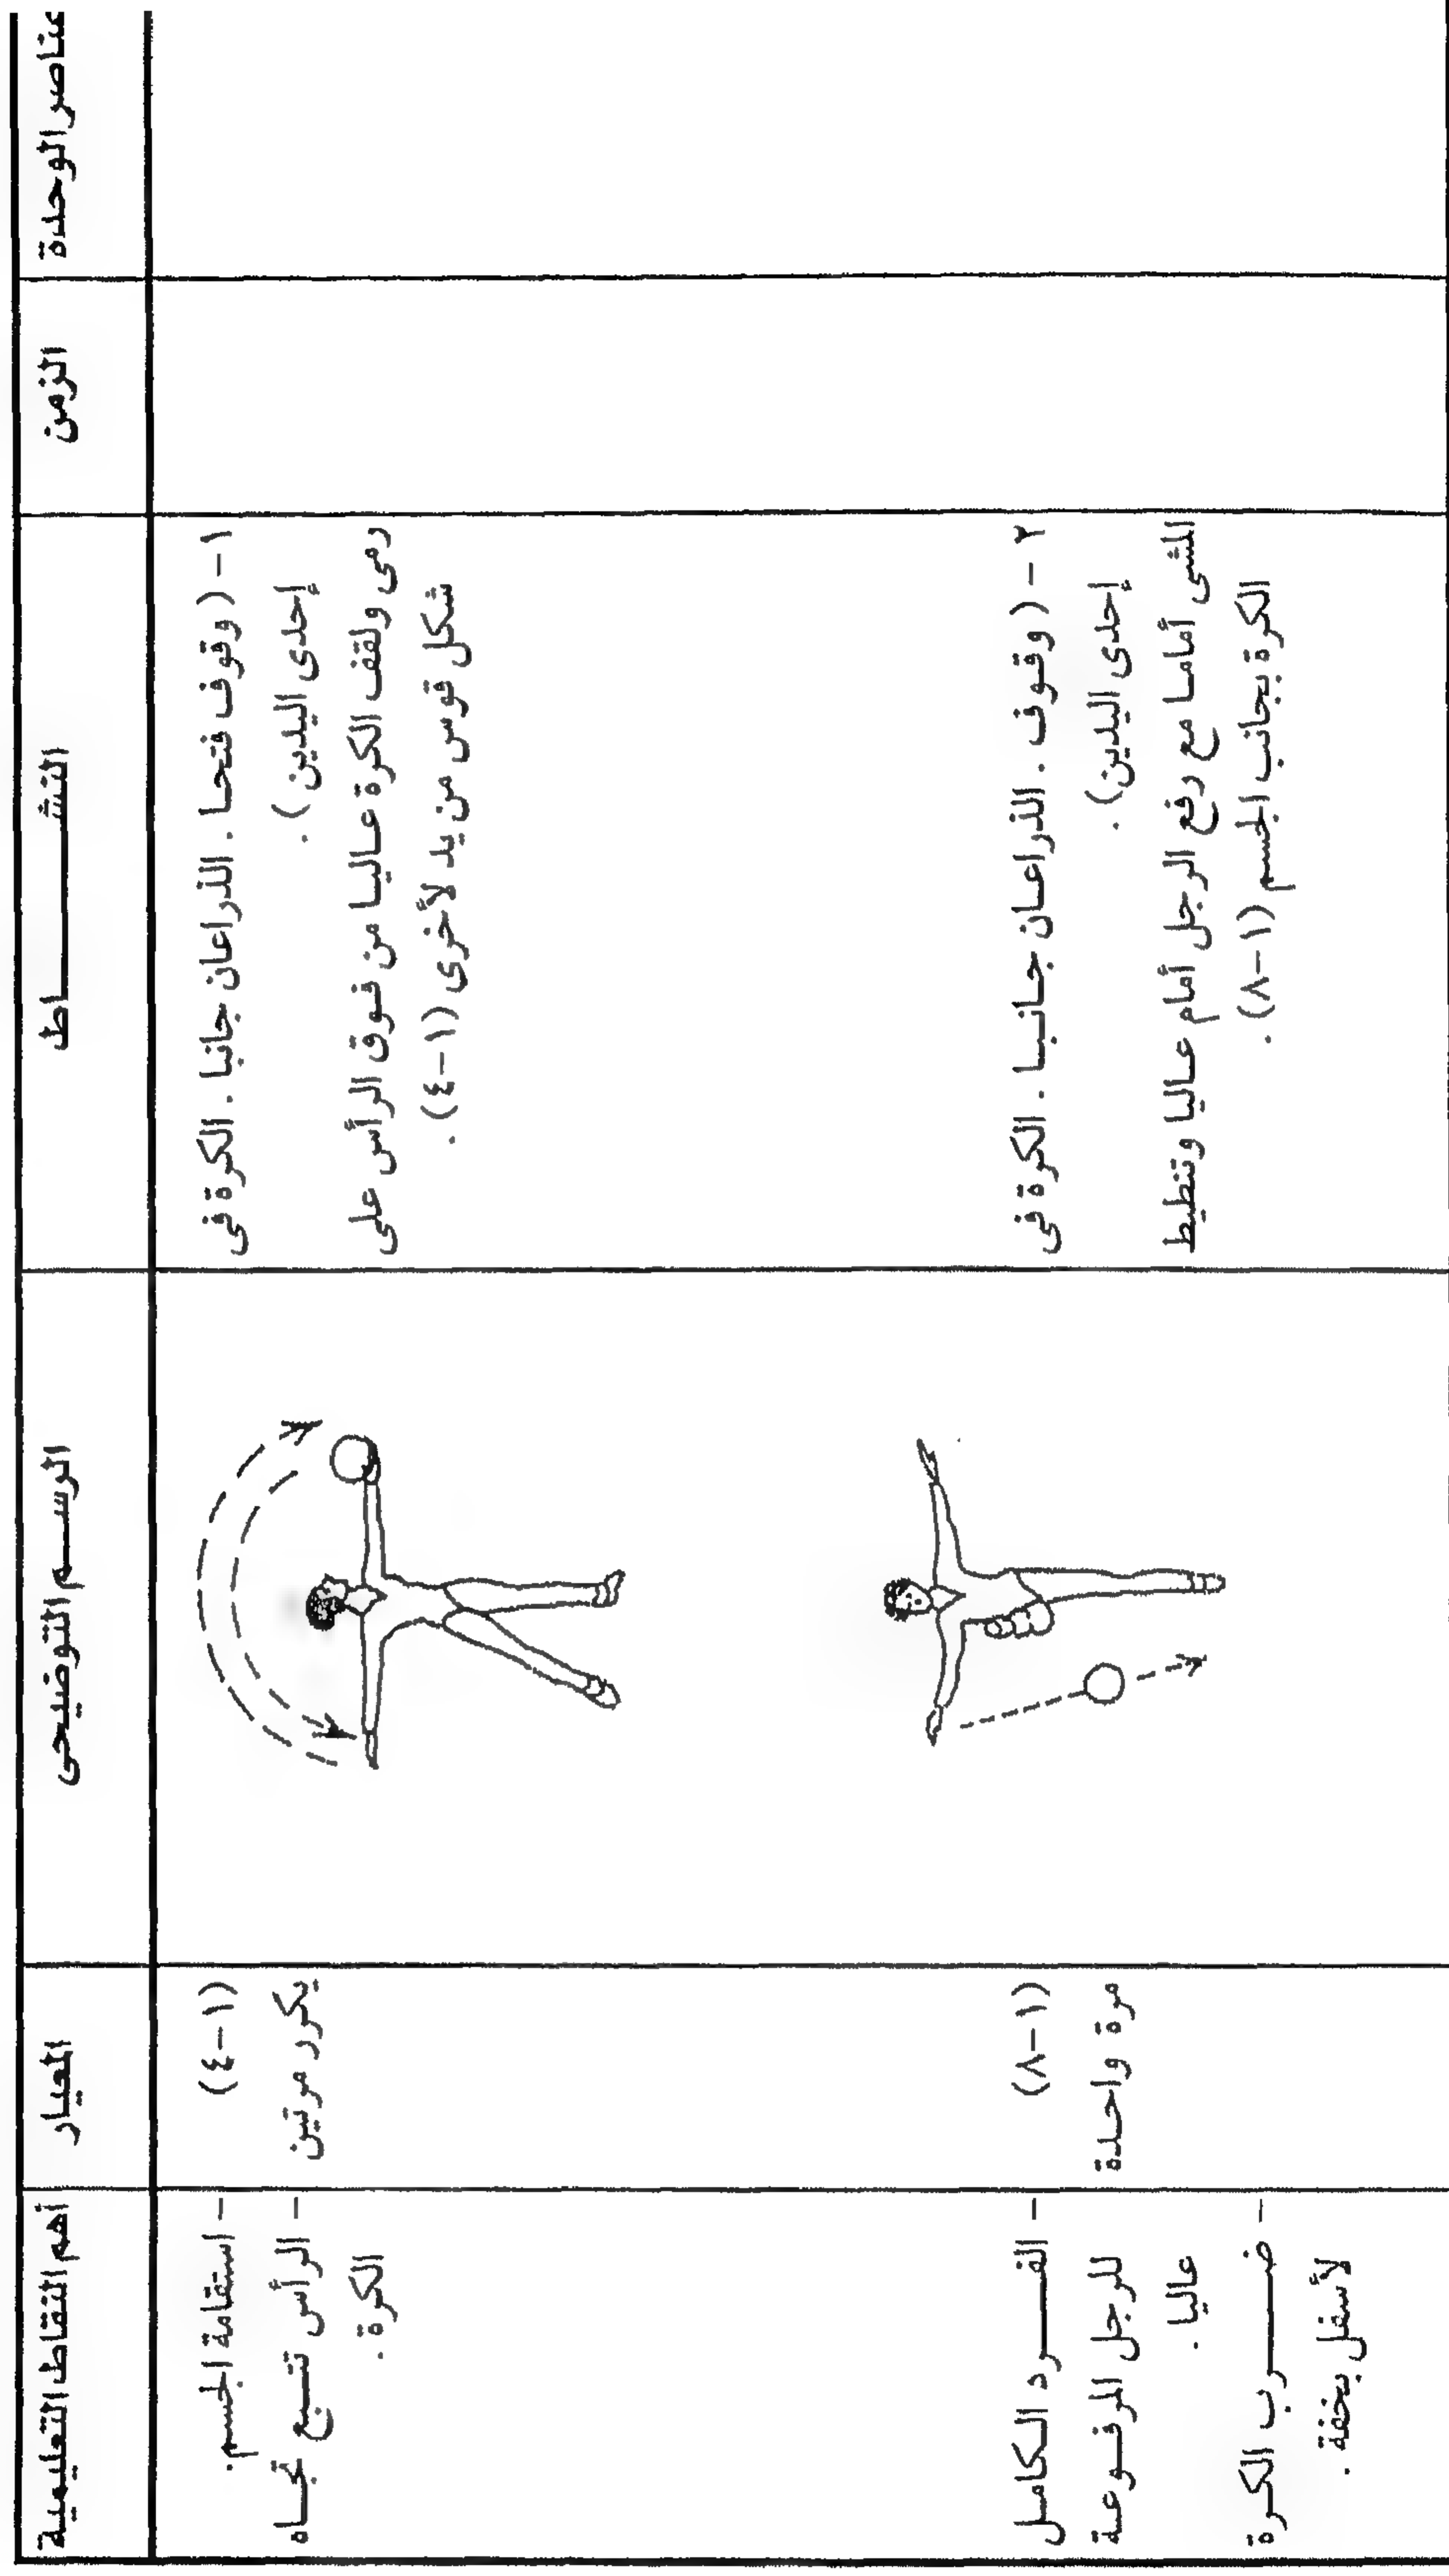 عناصر الوحدة
الزمن
النشـــــــاط
الرســم التوضيحى
المعيار
أهم النقاط التعليمية
١ - (وقوف فتحـا . الذراعان جانبا . الكرة فى
إحدى اليدين) .
رمى ولقف الكرة عـاليـا من فـوق الرأس على
شكل قوس من يد لأخرى (١-٤) .
(١-٤)
يكرر مرتين
- استقامة الجسم.
- الرأس تتـبع تجـاه
الكرة .
٢ - (وقـوف . الذراعـان جـانـبـا . الكرة فى
إحدى اليدين) .
المشى أمامـا مع رفع الرجل أمام عـاليا وتنطيط
الكرة بجانب الجسم (١-٨) .
(١-٨)
مرة واحـدة
- الفــــرد الـكامـل
للرجل المرفـوعـة
عاليا .
- ضــــــرب الكـرة
لأسفل بخفة .